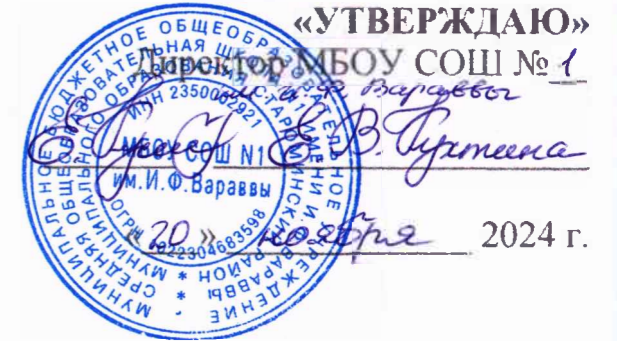 «УТВЕРЖДАЮ»
Директор МБОУ СОШ № 1
им. И. Ф. Вараввы
Е. В.
« 20 » ноября 2024 г.
МУНИЦИПАЛЬНОЕ БЮДЖЕТНОЕ ОБЩЕОБРАЗОВАТЕЛЬНОЕ УЧРЕЖДЕНИЕ
СРЕДНЯЯ ОБЩЕОБРАЗОВАТЕЛЬНАЯ
МУНИЦИПАЛЬНОГО ОБРАЗОВАНИЯ
РАЙОН
ВАРАВВЫ
ИНН 2350002921
МБОУ СОШ N1
им.И.Ф.Вараввы
ОГРН 1022304683598